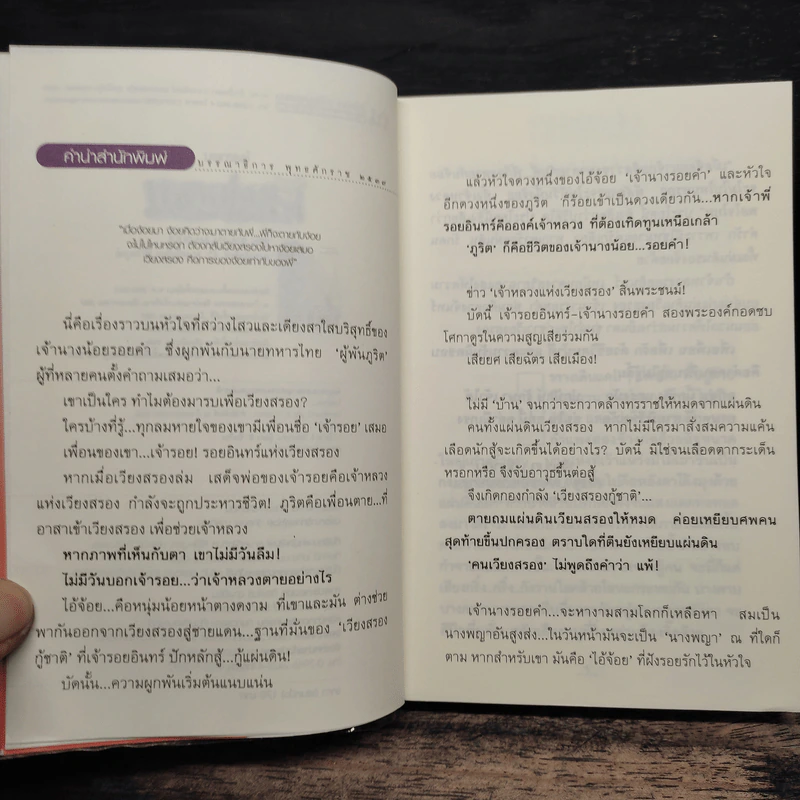 คำนำสำนักพิมพ์
บรรณาธิการ พุทธศักราช ๒๕๓๙
"เมื่อง้อยมา ง้อยคิดว่าจะมาตายกับพี่...พี่ก็จะตายกับง้อย
จะไม่ไปไหนหรอก ต้องกลับเวียงสรองไปหาง้อยเสมอ
เวียงสรอง คือภาระของง้อยเท่ากับของพี่"
นี่คือเรื่องราวบนหัวใจที่สว่างไสวและเดียงสาใสบริสุทธิ์ของ
เจ้านางน้อยรอยคำ ซึ่งผูกพันกับนายทหารไทย 'ผู้พันภูริต'
ผู้ที่หลายคนตั้งคำถามเสมอว่า...
เขาเป็นใคร ทำไมต้องมารบเพื่อเวียงสรอง?
ใครบ้างที่รู้...ทุกลมหายใจของเขามีเพื่อนชื่อ 'เจ้ารอย' เสมอ
เพื่อนของเขา...เจ้ารอย! รอยอินทร์แห่งเวียงสรอง
หากเมื่อเวียงสรองล่ม เสด็จพ่อของเจ้ารอยคือเจ้าหลวง
แห่งเวียงสรอง กำลังจะถูกประหารชีวิต! ภูริตคือเพื่อนตาย...ที่
อาสาเข้าเวียงสรอง เพื่อช่วยเจ้าหลวง
หากภาพที่เห็นกับตา เขาไม่มีวันลืม!
ไม่มีวันบอกเจ้ารอย...ว่าเจ้าหลวงตายอย่างไร
ไอ้จ้อย...คือหนุ่มน้อยหน้าตางดงาม ที่เขาและมัน ต่างช่วย
พากันออกจากเวียงสรองสู่ชายแดน...ฐานที่มั่นของ 'เวียงสรอง
กู้ชาติ' ที่เจ้ารอยอินทร์ ปักหลักสู้...กู้แผ่นดิน!
บัดนั้น...ความผูกพันเริ่มต้นแนบแน่น
แล้วหัวใจดวงหนึ่งของไอ้จ้อย 'เจ้านางรอยคำ' และหัวใจ
อีกดวงหนึ่งของภูริต ก็ร้อยเข้าเป็นดวงเดียวกัน...หากเจ้าพี่
รอยอินทร์คือองค์เจ้าหลวง ที่ต้องเทิดทูนเหนือเกล้า
'ภูริต' ก็คือชีวิตของเจ้านางน้อย...รอยคำ!
ข่าว 'เจ้าหลวงแห่งเวียงสรอง' สิ้นพระชนม์!
บัดนี้ เจ้ารอยอินทร์-เจ้านางรอยคำ สองพระองค์กอดซบ
โศกาดูรในความสูญเสียร่วมกัน
เสียยศ เสียฉัตร เสียเมือง!
ไม่มี 'บ้าน' จนกว่าจะกวาดล้างทรราชให้หมดจากแผ่นดิน
คนทั้งแผ่นดินเวียงสรอง หากไม่มีใครมาสั่งสมความแค้น
เลือดนักสู้จะเกิดขึ้นได้อย่างไร? บัดนี้ มิใช่จนเลือดตากระเด็น
หรอกหรือ จึงจับอาวุธขึ้นต่อสู้
จึงเกิดกองกำลัง 'เวียงสรองกู้ชาติ'...
ตายถมแผ่นดินเวียนสรองให้หมด ค่อยเหยียบศพคน
สุดท้ายขึ้นปกครอง ตราบใดที่ตีนยังเหยียบแผ่นดิน
'คนเวียงสรอง' ไม่พูดถึงคำว่า แพ้!
เจ้านางรอยคำ...จะหางามสามโลกก็เหลือหา สมเป็น
นางพญาอันสูงส่ง...ในวันหน้ามันจะเป็น 'นางพญา' ณ ที่ใดก็
ตาม หากสำหรับเขา มันคือ 'ไอ้จ้อย' ที่ฝังรอยรักไว้ในหัวใจ